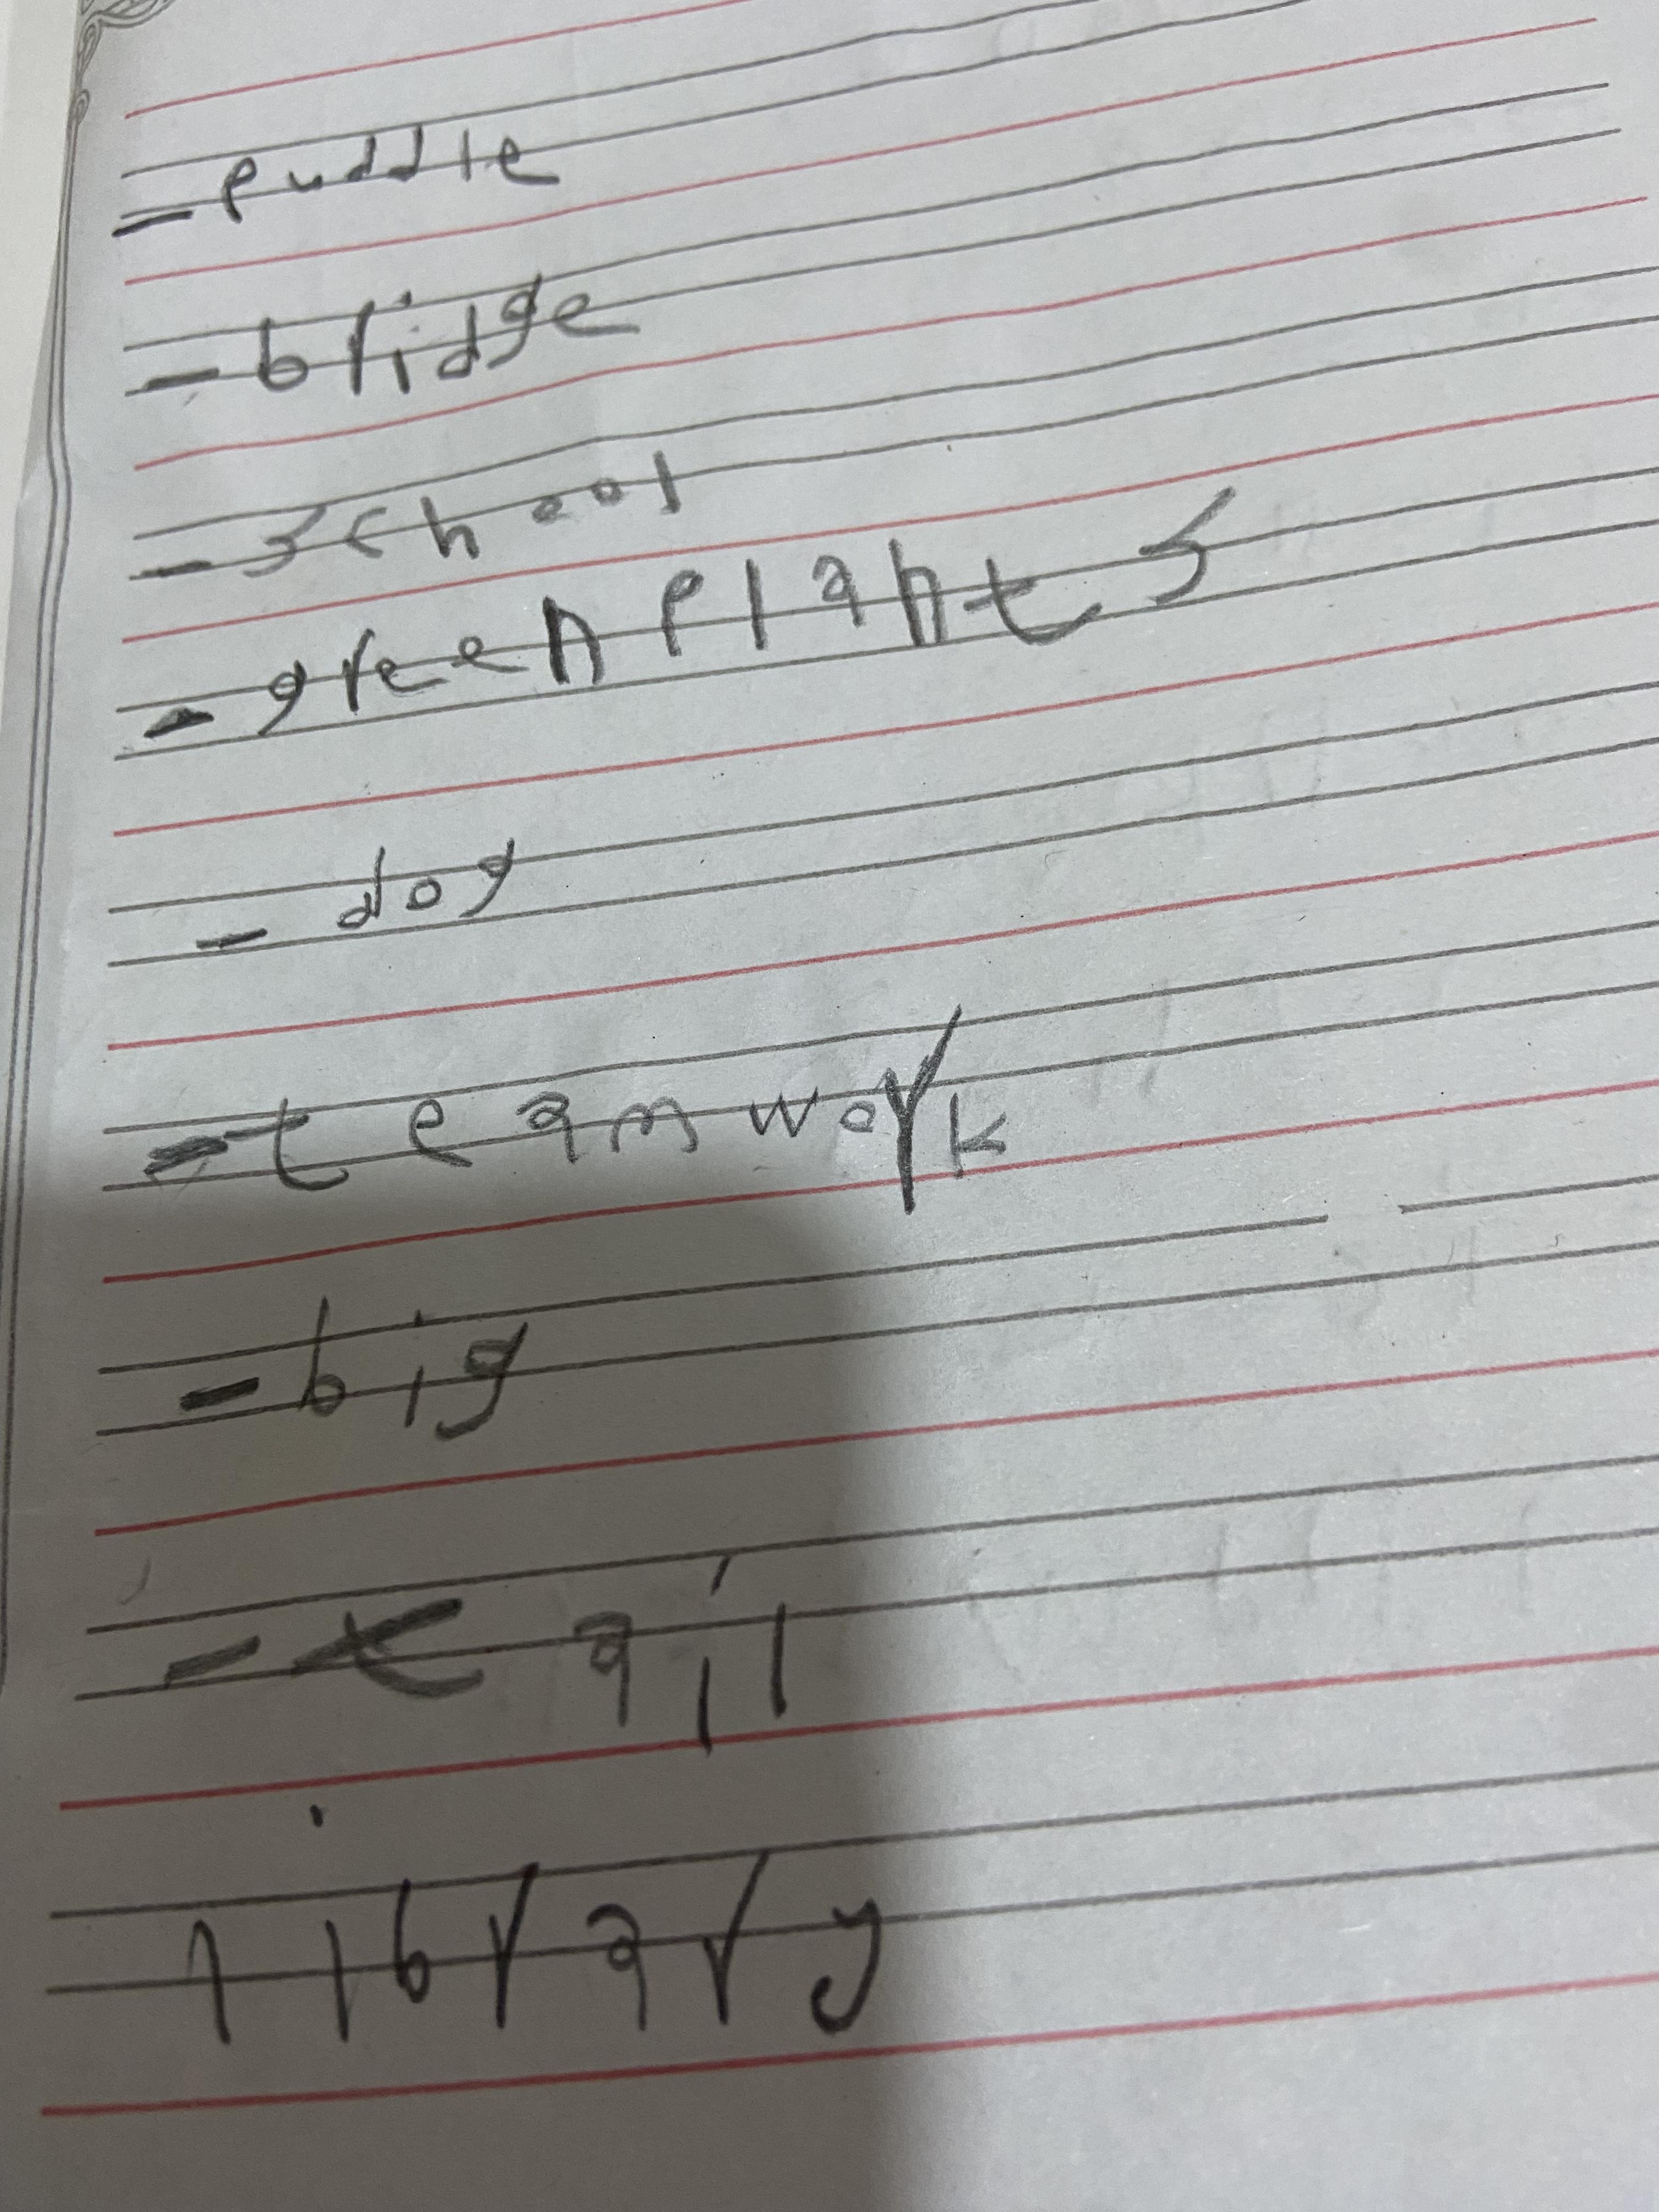 - puddle
- bridge
- school
- green plants
- dog
- teamwork
- big
- tail
library